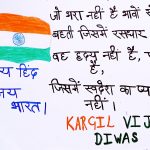 जो भरा नहीं है भावों से
बहती जिसमें रसधार
वह हृदय नहीं है, प
है,
जिसमें स्वदेश का प्या
नहीं।
जय हिंद
जय
भारत।
KARGIL VIJ
DIWAS